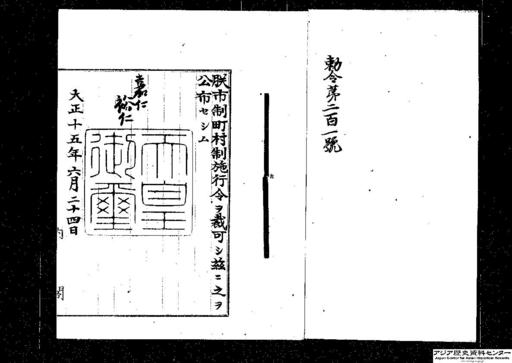 勅令第二百一號
朕市制町村制施行令ヲ裁可シ茲ニ之ヲ
公布セシム
嘉仁
裕仁
天皇
御璽
大正十五年六月二十四日
内閣
アジア歴史資料センター
Japan Center for Asian Historical Records